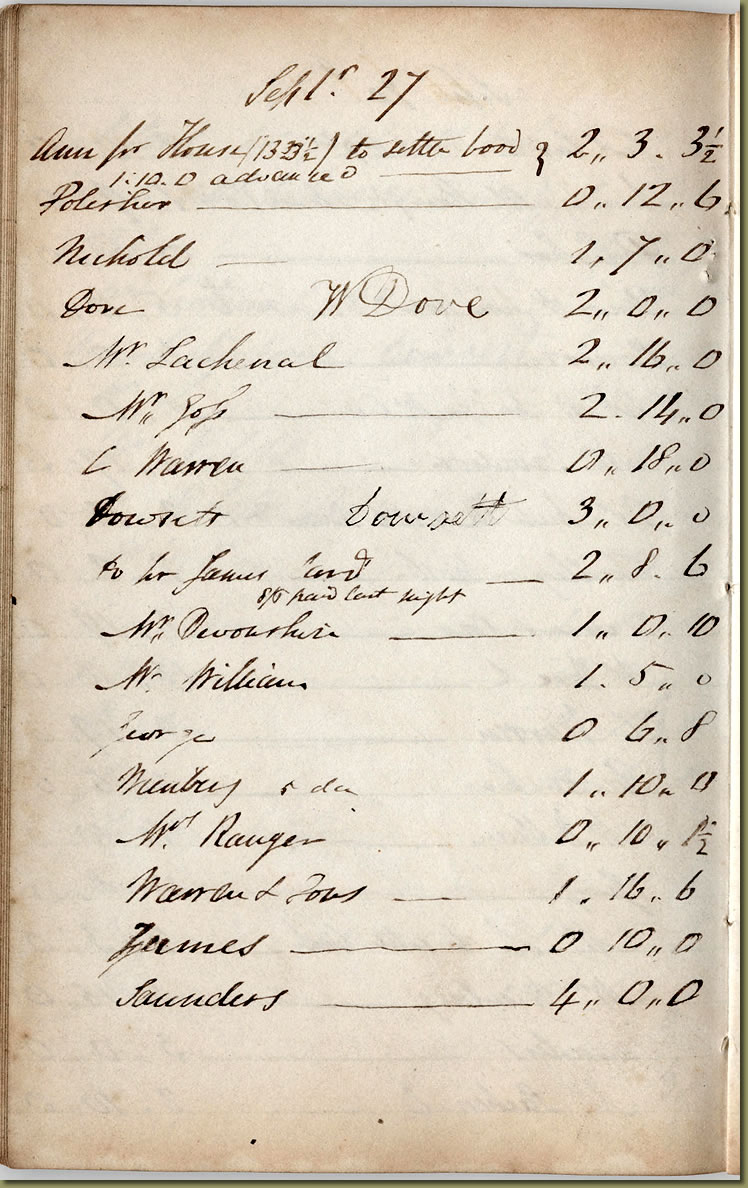 Septr. 27
Ann for House (13 3½) to settle book } 2 „ 3 . 3½
1.10.0 advanced
Polisher 0 „ 12 „ 6
Nichold 1 , 7 „ 0
Dove W Dove 2 „ 0 „ 0
Mr. Lachenal 2 „ 16 „ 0
Mr. Goss 2 . 14 „ 0
C Warren 0 „ 18 „ 0
Dowsett Dowsett 3 „ 0 „ 0
James 2 „ 8 . 6
paid last night
Mr. Devonshire 1 „ 0 „ 10
Mr. William 1 . 5 „ 0
George 0 6 „ 8
1 „ 10 „ 0
Mrs. Ranger 0 „ 10 „ 1½
Warren & Sons 1 . 16 „ 6
James 0 10 „ 0
Saunders 4 „ 0 „ 0